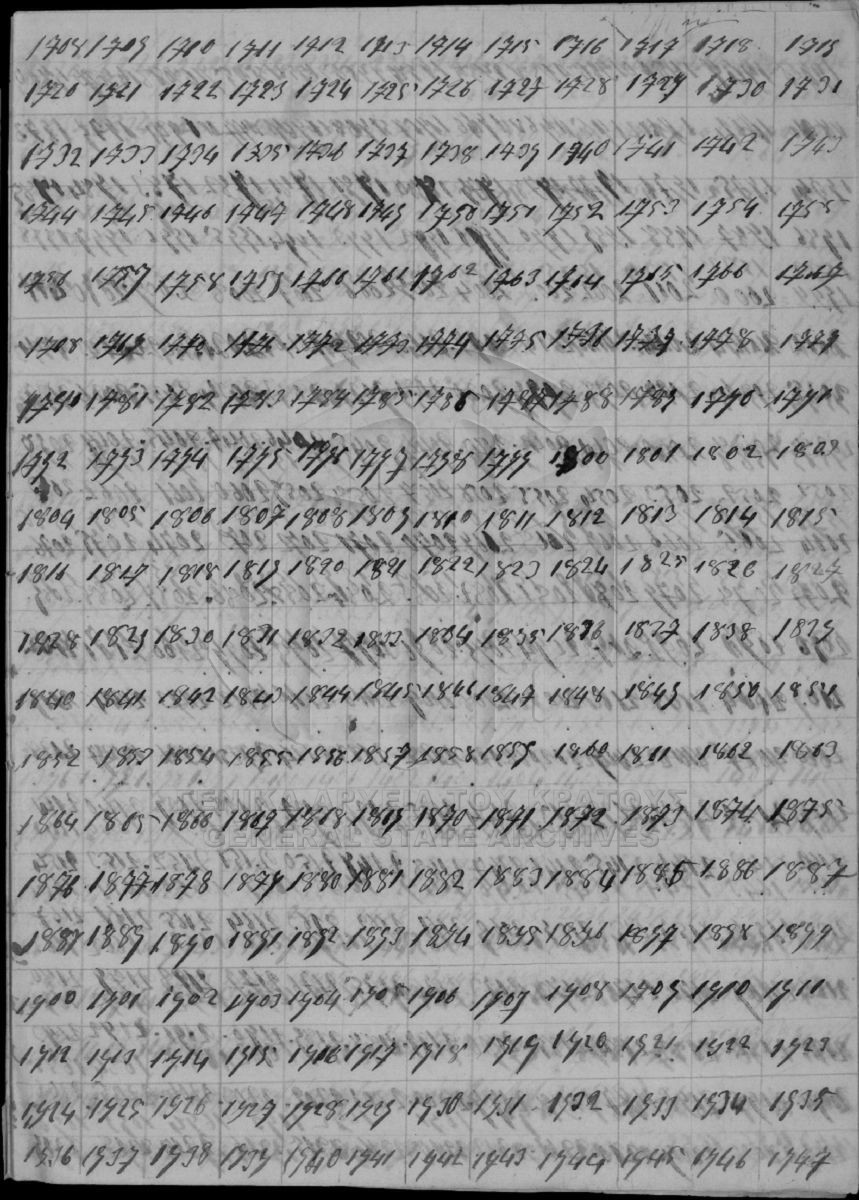 1708 1709 1710 1711 1712 1713 1714 1715 1716 1717 1718 1719
1720 1721 1722 1723 1724 1725 1726 1727 1728 1729 1730 1731
1732 1733 1734 1735 1736 1737 1738 1739 1740 1741 1742 1743
1744 1745 1746 1747 1748 1749 1750 1751 1752 1753 1754 1755
1756 1757 1758 1759 1760 1761 1762 1763 1764 1765 1766 1767
1768 1769 1770 1771 1772 1773 1774 1775 1776 1777 1778 1779
1780 1781 1782 1783 1784 1785 1786 1787 1788 1789 1790 1791
1792 1793 1794 1795 1796 1797 1798 1799 1800 1801 1802 1803
1804 1805 1806 1807 1808 1809 1810 1811 1812 1813 1814 1815
1816 1817 1818 1819 1820 1821 1822 1823 1824 1825 1826 1827
1828 1829 1830 1831 1832 1833 1834 1835 1836 1837 1838 1839
1840 1841 1842 1843 1844 1845 1846 1847 1848 1849 1850 1851
1852 1853 1854 1855 1856 1857 1858 1859 1860 1861 1862 1863
ΓΕΝΙΚΑ ΑΡΧΕΙΑ ΤΟΥ ΚΡΑΤΟΥΣ
1864 1865 1866 1867 1868 1869 1870 1871 1872 1873 1874 1875
GENERAL STATE ARCHIVES
1876 1877 1878 1879 1880 1881 1882 1883 1884 1885 1886 1887
1888 1889 1890 1891 1892 1893 1894 1895 1896 1897 1898 1899
1900 1901 1902 1903 1904 1905 1906 1907 1908 1909 1910 1911
1912 1913 1914 1915 1916 1917 1918 1919 1920 1921 1922 1923
1924 1925 1926 1927 1928 1929 1930 1931 1932 1933 1934 1935
1936 1937 1938 1939 1940 1941 1942 1943 1944 1945 1946 1947